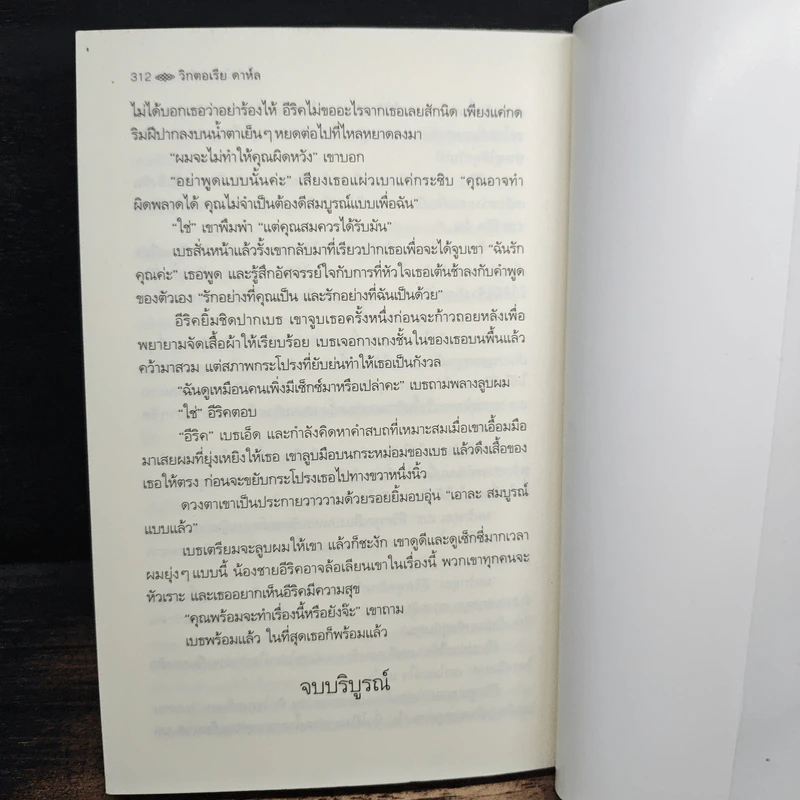 312 วิกตอเรีย ดาห์ล
ไม่ได้บอกเธอว่าอย่าร้องไห้ อีริคไม่ขออะไรจากเธอเลยสักนิด เพียงแค่กด
ริมฝีปากลงบนน้ำตาเย็นๆ หยดต่อไปที่ไหลหยาดลงมา
“ผมจะไม่ทำให้คุณผิดหวัง” เขาบอก
“อย่าพูดแบบนั้นค่ะ” เสียงเธอแผ่วเบาแค่กระซิบ “คุณอาจทำ
ผิดพลาดได้ คุณไม่จำเป็นต้องดีสมบูรณ์แบบเพื่อฉัน”
“ใช่” เขาพึมพำ “แต่คุณสมควรได้รับมัน”
เบธสั่นหน้าแล้วรั้งเขากลับมาที่เรียวปากเธอเพื่อจะได้จูบเขา “ฉันรัก
คุณค่ะ” เธอพูด และรู้สึกอัศจรรย์ใจกับการที่หัวใจเธอเต้นช้าลงกับคำพูด
ของตัวเอง “รักอย่างที่คุณเป็น และรักอย่างที่ฉันเป็นด้วย”
อีริคยิ้มชิดปากเบธ เขาจูบเธอครั้งหนึ่งก่อนจะก้าวถอยหลังเพื่อ
พยายามจัดเสื้อผ้าให้เรียบร้อย เบธเจอกางเกงชั้นในของเธอบนพื้นแล้ว
คว้ามาสวม แต่สภาพกระโปรงที่ยับย่นทำให้เธอเป็นกังวล
“ฉันดูเหมือนคนเพิ่งมีเซ็กซ์มาหรือเปล่าคะ” เบธถามพลางลูบผม
“ใช่” อีริคตอบ
“อีริค” เบธเอ็ด และกำลังคิดหาคำสบถที่เหมาะสมเมื่อเขาเอื้อมมือ
มาเสยผมที่ยุ่งเหยิงให้เธอ เขาลูบมือบนกระหม่อมของเบธ แล้วดึงเสื้อของ
เธอให้ตรง ก่อนจะขยับกระโปรงเธอไปทางขวาหนึ่งนิ้ว
ดวงตาเขาเป็นประกายวาววามด้วยรอยยิ้มอบอุ่น “เอาละ สมบูรณ์
แบบแล้ว”
เบธเตรียมจะลูบผมให้เขา แล้วก็ชะงัก เขาดูดีและดูเซ็กซี่มากเวลา
ผมยุ่งๆ แบบนี้ น้องชายอีริคอาจล้อเลียนเขาในเรื่องนี้ พวกเขาทุกคนจะ
หัวเราะ และเธออยากเห็นอีริคมีความสุข
“คุณพร้อมจะทำเรื่องนี้หรือยังจ๊ะ” เขาถาม
เบธพร้อมแล้ว ในที่สุดเธอก็พร้อมแล้ว
จบบริบูรณ์